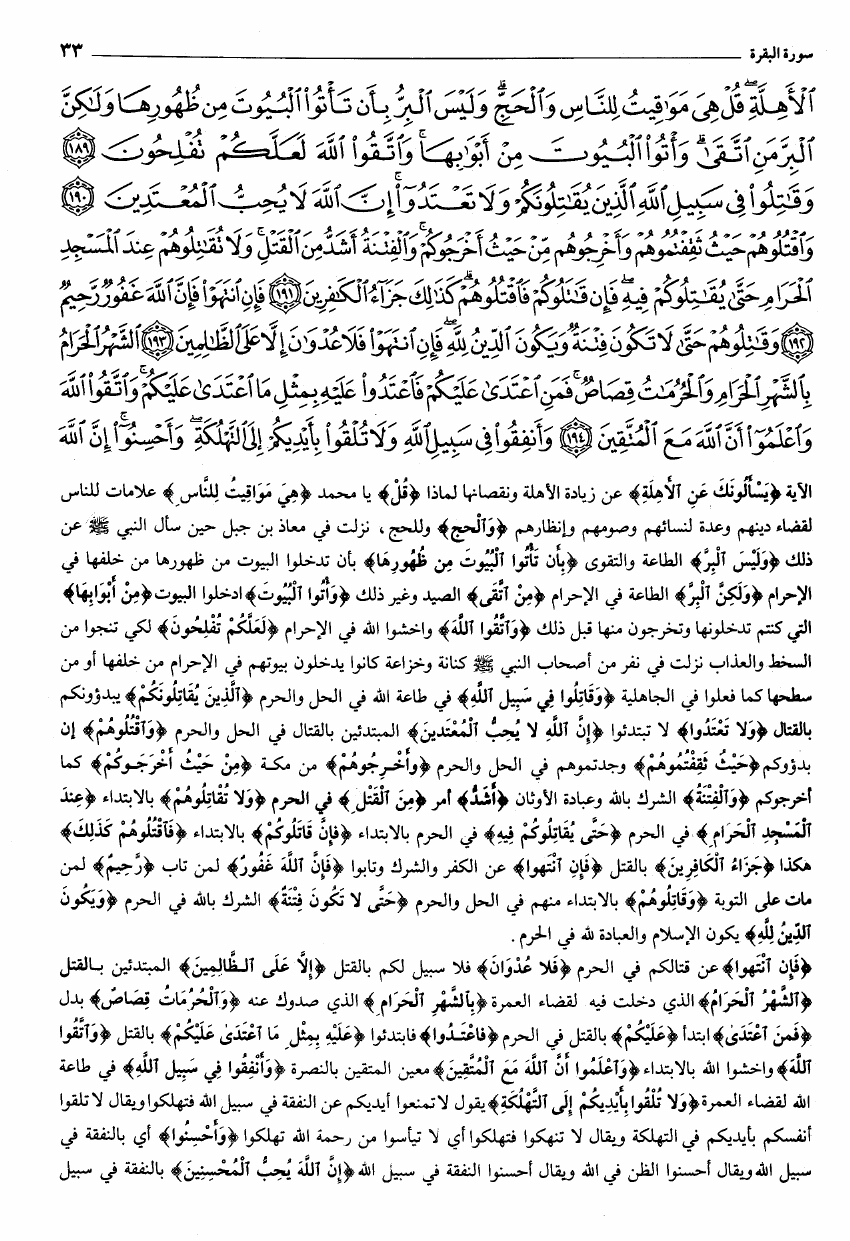 سورة البقرة ٣٣
ٱلْأَهِلَّةِ ۖ قُلْ هِىَ مَوَٰقِيتُ لِلنَّاسِ وَٱلْحَجِّ ۗ وَلَيْسَ ٱلْبِرُّ بِأَن تَأْتُوا۟ ٱلْبُيُوتَ مِن ظُهُورِهَا وَلَـٰكِنَّ
ٱلْبِرَّ مَنِ ٱتَّقَىٰ ۗ وَأْتُوا۟ ٱلْبُيُوتَ مِنْ أَبْوَٰبِهَا ۚ وَٱتَّقُوا۟ ٱللَّهَ لَعَلَّكُمْ تُفْلِحُونَ ١٨٩
وَقَـٰتِلُوا۟ فِى سَبِيلِ ٱللَّهِ ٱلَّذِينَ يُقَـٰتِلُونَكُمْ وَلَا تَعْتَدُوٓا۟ ۚ إِنَّ ٱللَّهَ لَا يُحِبُّ ٱلْمُعْتَدِينَ ١٩٠
وَٱقْتُلُوهُمْ حَيْثُ ثَقِفْتُمُوهُمْ وَأَخْرِجُوهُم مِّنْ حَيْثُ أَخْرَجُوكُمْ ۚ وَٱلْفِتْنَةُ أَشَدُّ مِنَ ٱلْقَتْلِ ۚ وَلَا تُقَـٰتِلُوهُمْ عِندَ ٱلْمَسْجِدِ
ٱلْحَرَامِ حَتَّىٰ يُقَـٰتِلُوكُمْ فِيهِ ۖ فَإِن قَـٰتَلُوكُمْ فَٱقْتُلُوهُمْ ۗ كَذَٰلِكَ جَزَآءُ ٱلْكَـٰفِرِينَ ١٩١ فَإِنِ ٱنتَهَوْا۟ فَإِنَّ ٱللَّهَ غَفُورٌ رَّحِيمٌ
١٩٢ وَقَـٰتِلُوهُمْ حَتَّىٰ لَا تَكُونَ فِتْنَةٌ وَيَكُونَ ٱلدِّينُ لِلَّهِ ۖ فَإِنِ ٱنتَهَوْا۟ فَلَا عُدْوَٰنَ إِلَّا عَلَى ٱلظَّـٰلِمِينَ ١٩٣ ٱلشَّهْرُ ٱلْحَرَامُ
بِٱلشَّهْرِ ٱلْحَرَامِ وَٱلْحُرُمَـٰتُ قِصَاصٌ ۚ فَمَنِ ٱعْتَدَىٰ عَلَيْكُمْ فَٱعْتَدُوا۟ عَلَيْهِ بِمِثْلِ مَا ٱعْتَدَىٰ عَلَيْكُمْ ۚ وَٱتَّقُوا۟ ٱللَّهَ
وَٱعْلَمُوٓا۟ أَنَّ ٱللَّهَ مَعَ ٱلْمُتَّقِينَ ١٩٤ وَأَنفِقُوا۟ فِى سَبِيلِ ٱللَّهِ وَلَا تُلْقُوا۟ بِأَيْدِيكُمْ إِلَى ٱلتَّهْلُكَةِ ۛ وَأَحْسِنُوٓا۟ ۚ إِنَّ ٱللَّهَ
الآية ﴿يَسْأَلُونَكَ عَنِ ٱلأَهِلَّةِ﴾ عن زيادة الأهلة ونقصانها لماذا ﴿قُلْ﴾ يا محمد ﴿هِيَ مَوَاقِيتُ لِلنَّاسِ﴾ علامات للناس
لقضاء دينهم وعدة لنسائهم وصومهم وإفطارهم ﴿وَٱلْحج﴾ وللحج، نزلت في معاذ بن جبل حين سأل النبي ﷺ عن
ذلك ﴿وَلَيْسَ ٱلْبِرَّ﴾ الطاعة والتقوى ﴿بِأَن تَأْتُوا ٱلْبُيُوتَ مِن ظُهُورِهَا﴾ بأن تدخلوا البيوت من ظهورها من خلفها في
الإحرام ﴿وَلَكِنَّ ٱلْبِرَّ﴾ الطاعة في الإحرام ﴿مِنْ ٱتَّقَى﴾ الصيد وغير ذلك ﴿وَأْتُوا ٱلْبُيُوتَ﴾ ادخلوا البيوت ﴿مِنْ أَبْوَابِهَا﴾
التي كنتم تدخلونها وتخرجون منها قبل ذلك ﴿وَٱتَّقُوا ٱللَّهَ﴾ واخشوا الله في الإحرام ﴿لَعَلَّكُمْ تُفْلِحُونَ﴾ لكي تنجوا من
السخط والعذاب نزلت في نفر من أصحاب النبي ﷺ كنانة وخزاعة كانوا يدخلون بيوتهم في الإحرام من خلفها أو من
سطحها كما فعلوا في الجاهلية ﴿وَقَاتِلُوا فِي سَبِيلِ ٱللَّهِ﴾ في طاعة الله في الحل والحرم ﴿ٱلَّذِينَ يُقَاتِلُونَكُمْ﴾ يبدؤونكم
بالقتال ﴿وَلا تَعْتَدُوا﴾ لا تبتدئوا ﴿إِنَّ ٱللَّهَ لا يُحِبُّ ٱلْمُعْتَدينَ﴾ المبتدئين بالقتال في الحل والحرم ﴿وَٱقْتُلُوهُمْ﴾ إن
بدؤوكم ﴿حَيْثُ ثَقِفْتُمُوهُمْ﴾ وجدتموهم في الحل والحرم ﴿وأَخْرِجُوهُمْ﴾ من مكة ﴿مِنْ حَيْثُ أَخْرَجُوكُمْ﴾ كما
أخرجوكم ﴿وَٱلْفِتْنَةُ﴾ الشرك بالله وعبادة الأوثان ﴿أَشَدُّ﴾ أمر ﴿مِنَ ٱلْقَتْلِ﴾ في الحرم ﴿وَلا تُقَاتِلُوهُمْ﴾ بالابتداء ﴿عِنْدَ
ٱلْمَسْجِدِ ٱلْحَرَامِ﴾ في الحرم ﴿حَتَّى يُقَاتِلُوكُمْ فِيهِ﴾ في الحرم بالابتداء ﴿فَإِنَّ قَاتَلُوكُمْ﴾ بالابتداء ﴿فَٱقْتُلُوهُمْ كَذَلِكَ﴾
هكذا ﴿جَزَاءُ ٱلْكَافِرِينَ﴾ بالقتل ﴿فَإِنِ ٱنْتَهوا﴾ عن الكفر والشرك وتابوا ﴿فَإِنَّ ٱللَّهَ غَفُورٌ﴾ لمن تاب ﴿رَّحِيمٌ﴾ لمن
مات على التوبة ﴿وَقَاتِلُوهُمْ﴾ بالابتداء منهم في الحل والحرم ﴿حَتَّى لا تَكُونَ فِتْنَةٌ﴾ الشرك بالله في الحرم ﴿وَيَكُونَ
ٱلدِّينُ لِلَّهِ﴾ يكون الإسلام والعبادة لله في الحرم.
﴿فَإِنِ ٱنْتَهوا﴾ عن قتالكم في الحرم ﴿فَلا عُدْوَانَ﴾ فلا سبيل لكم بالقتل ﴿إِلَّا عَلَى ٱلظَّالِمِينَ﴾ المبتدئين بالقتل
﴿ٱلشَّهْرُ ٱلْحَرَامُ﴾ الذي دخلت فيه لقضاء العمرة ﴿بِٱلشَّهْرِ ٱلْحَرَامِ﴾ الذي صدوك عنه ﴿وَٱلْحُرُمَاتُ قِصَاصٌ﴾ بدل
﴿فَمنَ ٱعْتَدَى﴾ ابتدأ ﴿عَلَيْكُمْ﴾ بالقتل في الحرم ﴿فَاعْتَدُوا﴾ فابتدئوا ﴿عَلَيْهِ بِمِثْلِ مَا ٱعْتَدَى عَلَيْكُمْ﴾ بالقتل ﴿وَٱتَّقُوا
ٱللَّهَ﴾ واخشوا الله بالابتداء ﴿وَٱعْلَمُوا أَنَّ ٱللَّهَ مَعَ ٱلْمُتَّقِينَ﴾ معين المتقين بالنصرة ﴿وَأَنْفِقُوا فِي سَبِيلِ ٱللَّهِ﴾ في طاعة
الله لقضاء العمرة ﴿وَلا تُلْقُوا بِأَيْدِيكُمْ إِلَى ٱلتَّهْلُكَةِ﴾ يقول لا تمنعوا أيديكم عن النفقة في سبيل الله فتهلكوا ويقال لا تلقوا
أنفسكم بأيديكم في التهلكة ويقال لا تنهكوا فتهلكوا أي لا تيأسوا من رحمة الله تهلكوا ﴿وَأَحْسِنُوا﴾ أي بالنفقة في
سبيل الله ويقال أحسنوا الظن في الله ويقال أحسنوا النفقة في سبيل الله ﴿إِنَّ ٱللَّهَ يُحِبُّ ٱلْمُحْسِنِينَ﴾ بالنفقة في سبيل